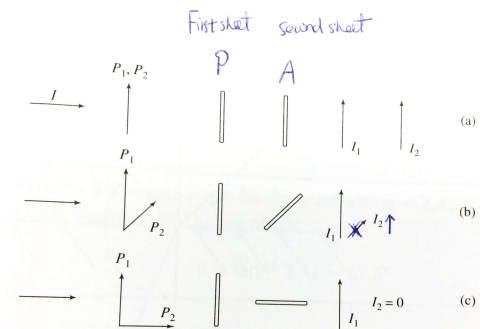 First sheet second sheet
P A
P₁, P₂
I
I₁ I₂ (a)
P₁
P₂ I₁ I₂ (b)
P₁
P₂ I₂ = 0 (c)
I₁